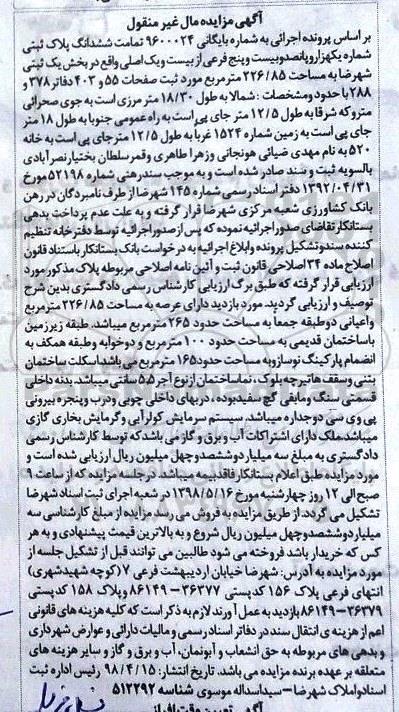 آگهی مزایده مال غیر منقول
بر اساس پرونده اجرائی به شماره بایگانی ۹۶۰۰۰۲۴ تمامت ششدانگ پلاک ثبتی
شماره یکهزاروپانصدوبیست و پنج فرعی از بیست ویک اصلی واقع در بخش یک ثبتی
شهرضا به مساحت ۲۲۶/۸۵ مترمربع مورد ثبت صفحات ۵۵ و ۴۰۳ دفاتر ۳۷۸ و
۲۸۸ با حدود ومشخصات : شمالا به طول ۱۸/۳۰ متر مرزی است به جوی صحرائی
متروکه شرقا به طول ۱۲/۵ متر جای پی است به راه عمومی جنوبا به طول ۱۸ متر
جای پی است به زمین شماره ۱۵۲۴ غربا به طول ۱۲/۵ متر جای پی است به خانه
۵۲۰ به نام مهدی ضیائی هونجانی وزهرا طاهری و قمرسلطان بختیار نصرآبادی
بالسویه ثبت و سند صادر شده است و به موجب سند رهنی شماره ۵۲۱۹۸ مورخ
۱۳۹۲/۰۴/۳۱ دفتر اسناد رسمی شماره ۱۴۵ شهرضا از طرف نامبردگان در رهن
بانک کشاورزی شعبه مرکزی شهرضا قرار گرفته و به علت عدم پرداخت بدهی
بستانکار تقاضای صدور اجرائیه نموده که پس از صدور اجرائیه توسط دفترخانه تنظیم
کننده سند وتشکیل پرونده وابلاغ اجرائیه به درخواست بانک بستانکار باستناد قانون
اصلاح ماده ۳۴ اصلاحی قانون ثبت و آئین نامه اصلاحی مربوطه پلاک مذکور مورد
ارزیابی قرار گرفته که طبق برگ ارزیابی کارشناس رسمی دادگستری بدین شرح
توصیف و ارزیابی گردید. مورد بازدید دارای عرصه به مساحت ۲۲۶/۸۵ مترمربع
واعیانی دوطبقه جمعاً به مساحت حدود ۲۶۵ مترمربع میباشد. طبقه زیرزمین
باساختمان قدیمی به مساحت حدود ۱۰۰ مترمربع و دوخوابه وطبقه همکف به
انضمام پارکینگ نوسازو به مساحت حدود۱۶۵ مترمربع می باشد اسکلت ساختمان
بتنی وسقف ها تیرچه بلوک ، نما ساختمان از نوع آجر ۵.۵ سانتی میباشد. بدنه داخلی
قسمتی سنگ و مابقی گچ سفید بوده ، دربهای داخلی چوبی ودرب وپنجره بیرونی
پی وی سی دوجداره میباشد. سیستم سرمایش کولرآبی وگرمایش بخاری گازی
میباشد ملک دارای اشتراکات آب و برق و گاز می باشد که توسط کارشناس رسمی
دادگستری به مبلغ سه میلیارد وششصدوچهل میلیون ریال ارزیابی شده است و
مورد مزایده طبق اعلام بستانکار فاقد بیمه میباشد. در جلسه مزایده که از ساعت ۹
صبح الی ۱۲ روز چهارشنبه مورخ ۱۳۹۸/۵/۱۶ در شعبه اجرای ثبت اسناد شهرضا
تشکیل می گردد. از طریق مزایده به فروش می رسد مزایده از مبلغ کارشناسی سه
میلیاردوششصدوچهل میلیون ریال شروع و به بالاترین قیمت پیشنهادی و به هر
کس که خریدار باشد فروخته می شود طالبین می توانند قبل از تشکیل جلسه از
مورد مزایده به آدرس: شهرضا خیابان اردیبهشت فرعی ۷(کوچه شهیدشهری)
انتهای فرعی پلاک ۱۵۶ کدپستی ۳۶۳۷۷-۸۶۱۴۹ وپلاک ۱۵۸ کدپستی
۳۶۳۷۹-۸۶۱۴۹ بازدید به عمل آورند لازم به ذکر است که کلیه هزینه های قانونی
اعم از هزینه ی انتقال سند در دفاتر اسناد رسمی و مالیات دارائی و عوارض شهرداری
و بدهی های مربوطه به حق انشعاب و آبونمان، آب و برق و گاز و سایر هزینه های
متعلقه بر عهده برنده مزایده می باشد. تاریخ انتشار: ۹۸/۴/۱۵ رئیس اداره ثبت
اسناد واملاک شهرضا–سیداسداله موسوی شناسه ۵۱۲۲۹۲